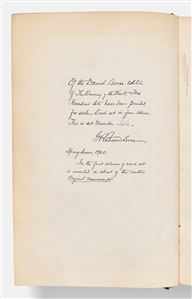 Of the Daniel Boone edition
of The Winning of the West, two
Hundred sets have been printed
for sale. Each set in four volumes
This is set Number
G P Putnam's Sons
1900
In the first volume of each set
is inserted a sheet of the author's
Original manuscript.